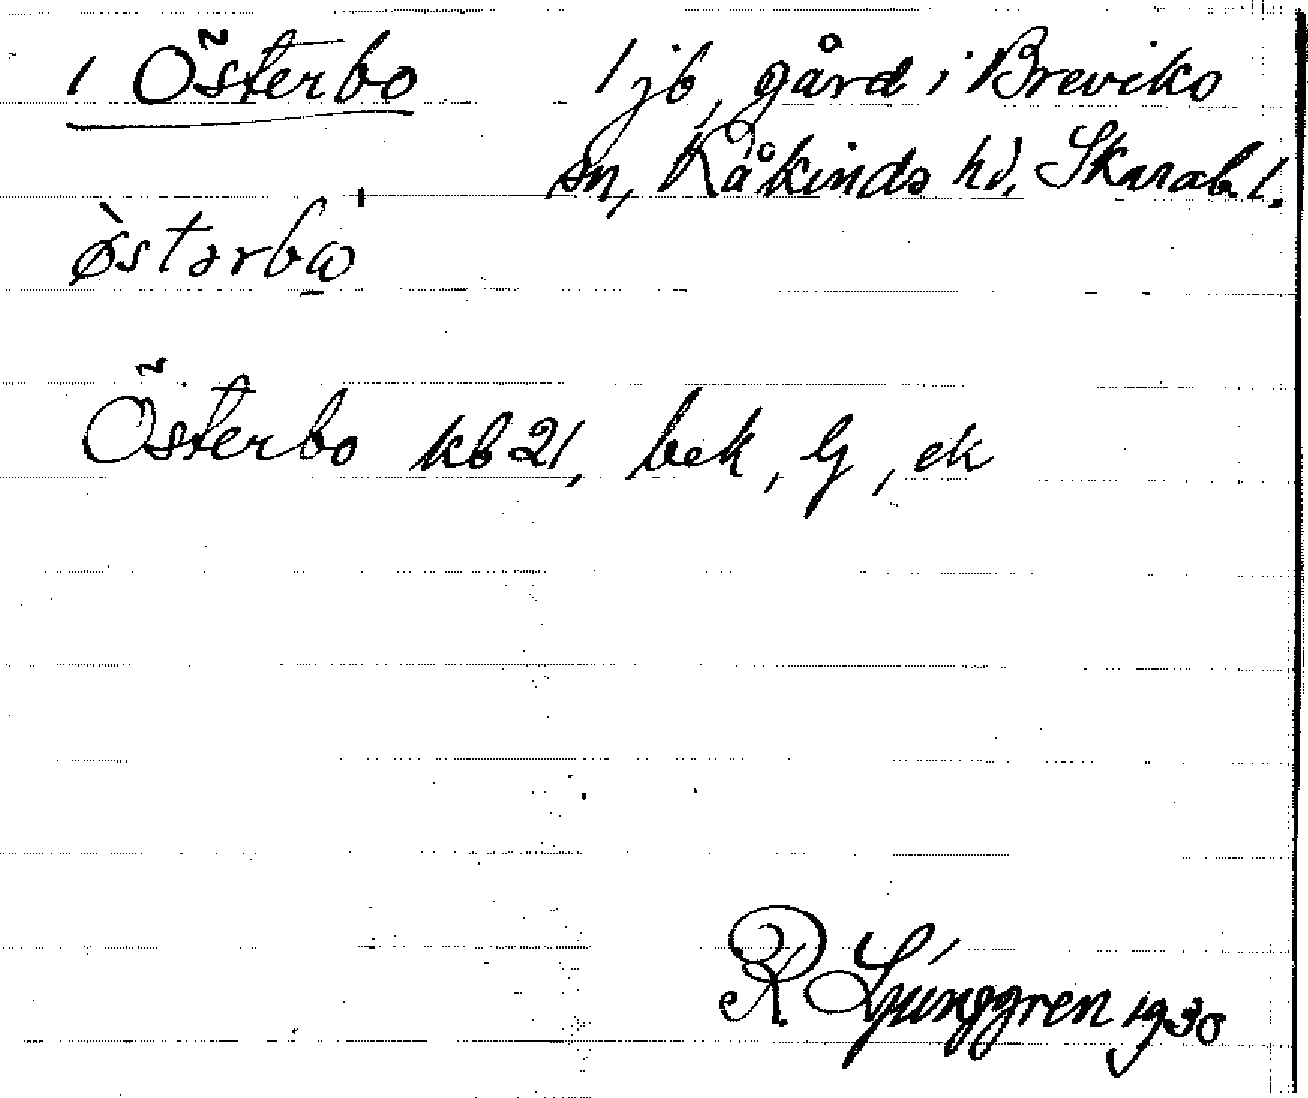 1 Österbo 1 jb, gård i Breviks
sn, Kåkinds hd, Skarab. l.
ø̀stərbω
Österbo kb 21, bek, Lg, ek
R Ljunggren 1930